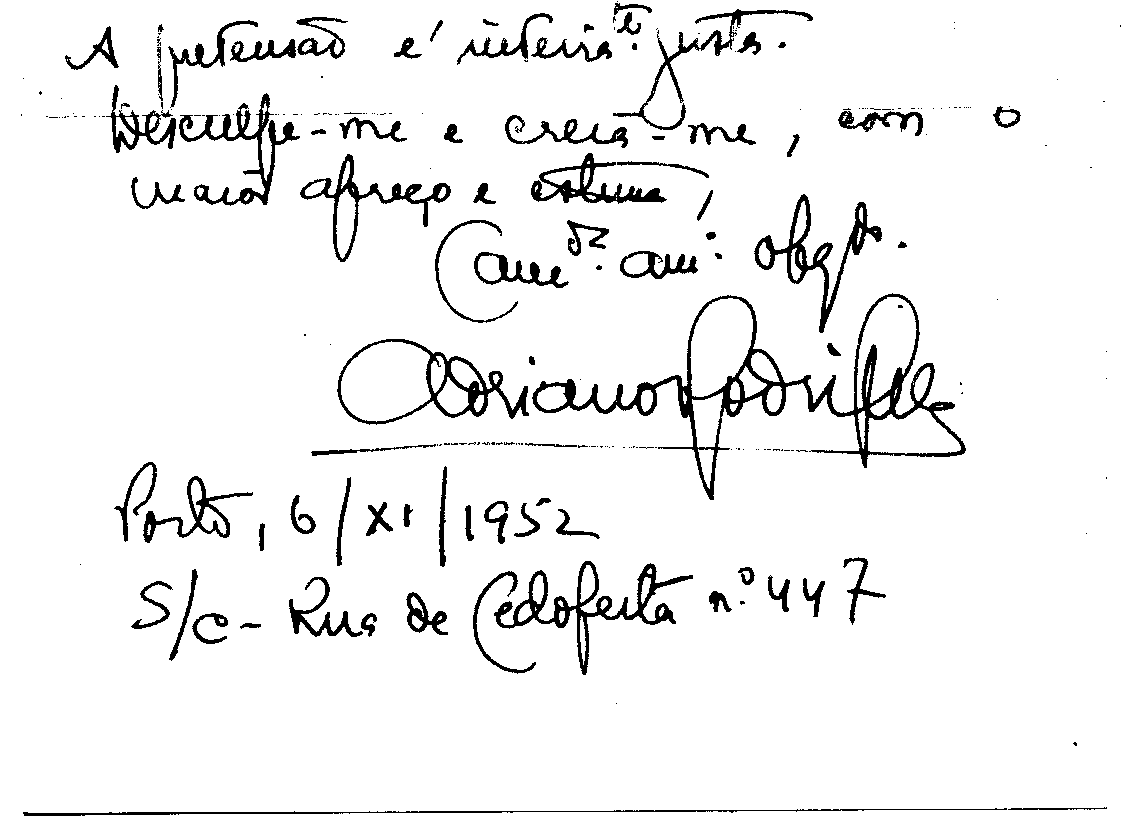 A pretensão é inteira.te justa.
Desculpe-me e creia-me, com o
maior apreço e estima,
Cam.da am.º obg.do.
Adriano Rodrigues
Porto, 6/XI/1952
S/c - Rua de Cedofeita n.º 447